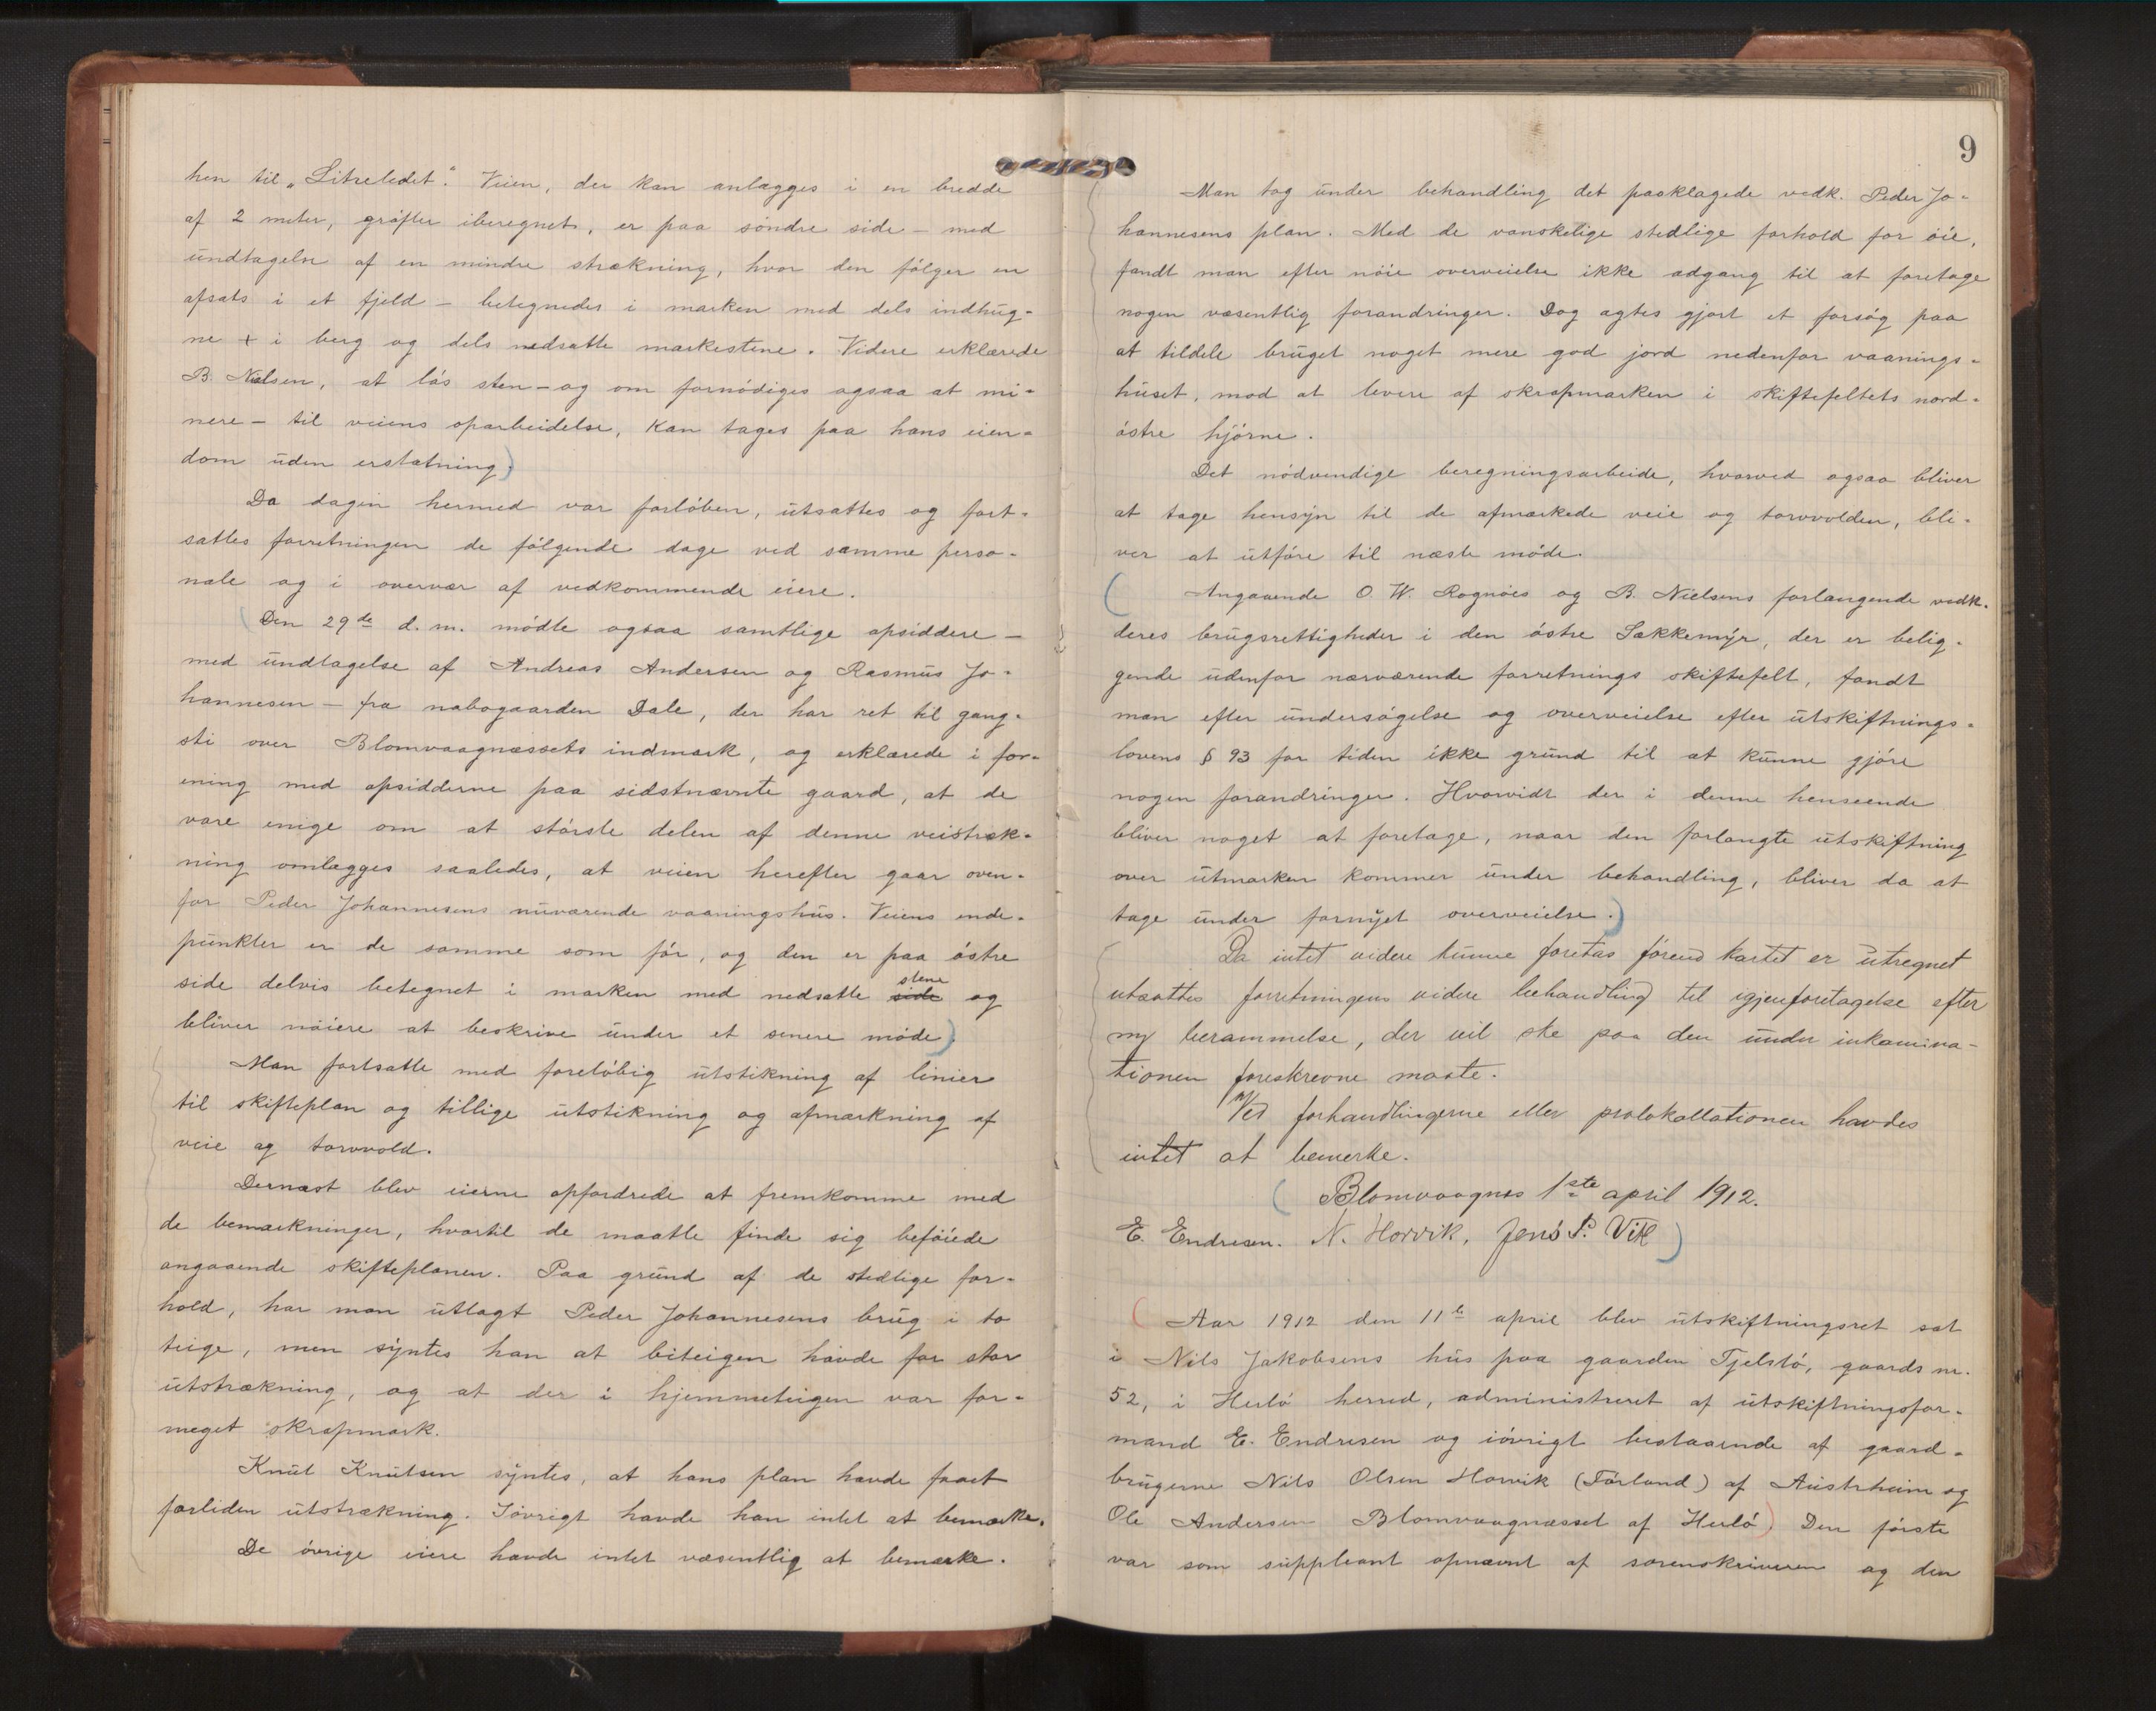 hen til „Litreledet". Veien, der kan anlægges i en bredde
af 2 meter, gröfter iberegnet, er paa söndre side – med
undtagelse af en mindre strækning, hvor den fölger en
afsats i et fjeld – betegnedes i marken med dels indhug-
ne + i berg og dels nedsatte markestene. Videre erklærede
B. Nielsen, at lös sten – og om fornödiges ogsaa at mi-
nere – til veiens oparbeidelse, kan tages paa hans eien-
dom uden erstatning.
Da dagen hermed var forlöben, utsattes og fort-
sattes forretningen de fölgende dage ved samme perso-
nale og i overvær af vedkommende eiere.
Den 29de d.m. mödte ogsaa samtlige opsiddere –
med undtagelse af Andreas Andersen og Rasmus Jo-
hannesen – fra nabogaarden Dale, der har ret til gang-
sti over Blomvaagnæssets indmark, og erklærede i for-
ening med opsidderne paa sidstnævnte gaard, at de
vare enige om at störste delen af denne veistræk-
ning omlægges saaledes, at veien herefter gaar oven-
for Peder Johannesens nuværende vaaningshus. Veiens ende-
punkter er de samme som för, og den er paa östre
side delvis betegnet i marken med nedsatte side stene og
bliver nöiere at beskrive under et senere möde.
Man fortsatte med forelöbig utstikning af linier
til skifteplan og tillige utstikning og afmærkning af
veie og torvvold.
Dernæst blev eierne opfordrede at fremkomme med
de bemærkninger, hvortil de maatte finde sig beföiede
angaaende skifteplanen. Paa grund af de stedlige for-
hold, har man utlagt Peder Johannesens brug i to
teige, men syntes han at biteigen havde for stor
utstrækning, og at der i hjemmeteigen var for-
meget skrapmark.
Knut Knutsen syntes, at hans plan havde faaet
forliden utstrækning. Iövrigt havde han intet at bemærke.
De övrige eiere havde intet væsentlig at bemærke.
9
Man tog under behandling det paaklagede vedk. Peder Jo-
hannesens plan. Med de vanskelige stedlige forhold for öie,
fandt man efter nöie overveielse ikke adgang til at foretage
nogen væsentlig forandringer. Dog agtes gjort et forsög paa
at tildele bruget noget mere god jord nedenfor vaanings-
huset, mod at levere af skrapmarken i skiftefeltets nord-
östre hjörne.
Det nödvendige beregningsarbeide, hvorved ogsaa bliver
at tage hensyn til de afmærkede veie og torvvolden, bli-
ver at utföre til næste möde.
Angaaende O. W. Rognöes og B. Nielsens forlangende vedk.
deres brugsrettigheder i den östre Sækkemyr, der er belig-
gende udenfor nærværende forretnings skiftefelt, fandt
man efter undersögelse og overveielse efter utskiftnings-
lovens § 93 for tiden ikke grund til at kunne gjöre
nogen forandringer. Hvorvidt der i denne henseende
bliver noget at foretage, naar den forlangte utskiftning
over utmarken kommer under behandling, bliver da at
tage under fornyet overveielse.
Da intet videre kunne foretas förend kartet er utregnet
utsattes forretningens videre behandling til igjenforetagelse efter
ny berammelse, der vil ske paa den under inkamina-
tionen foreskrevne maate.
Ved forhandlingerne eller protokollationen havdes
intet at bemerke.
Blomvaagnes 1ste april 1912.
E. Endresen. N. Horvik, Jens P. Vik
Aar 1912 den 11te april blev utskiftningsret sat
i Nils Jakobsens hus paa gaarden Tjeldstö, gaards nr.
52, i Herlö herred, administreret af utskiftningsfor-
mand E. Endresen og iövrigt bestaaende af gaard-
brugerne Nils Olsen Horvik (Förland) af Austrheim og
Ole Andersen Blomvaagnæsset af Herlö. Den förste
var som suppleant opnævnt af sorenskriveren og den